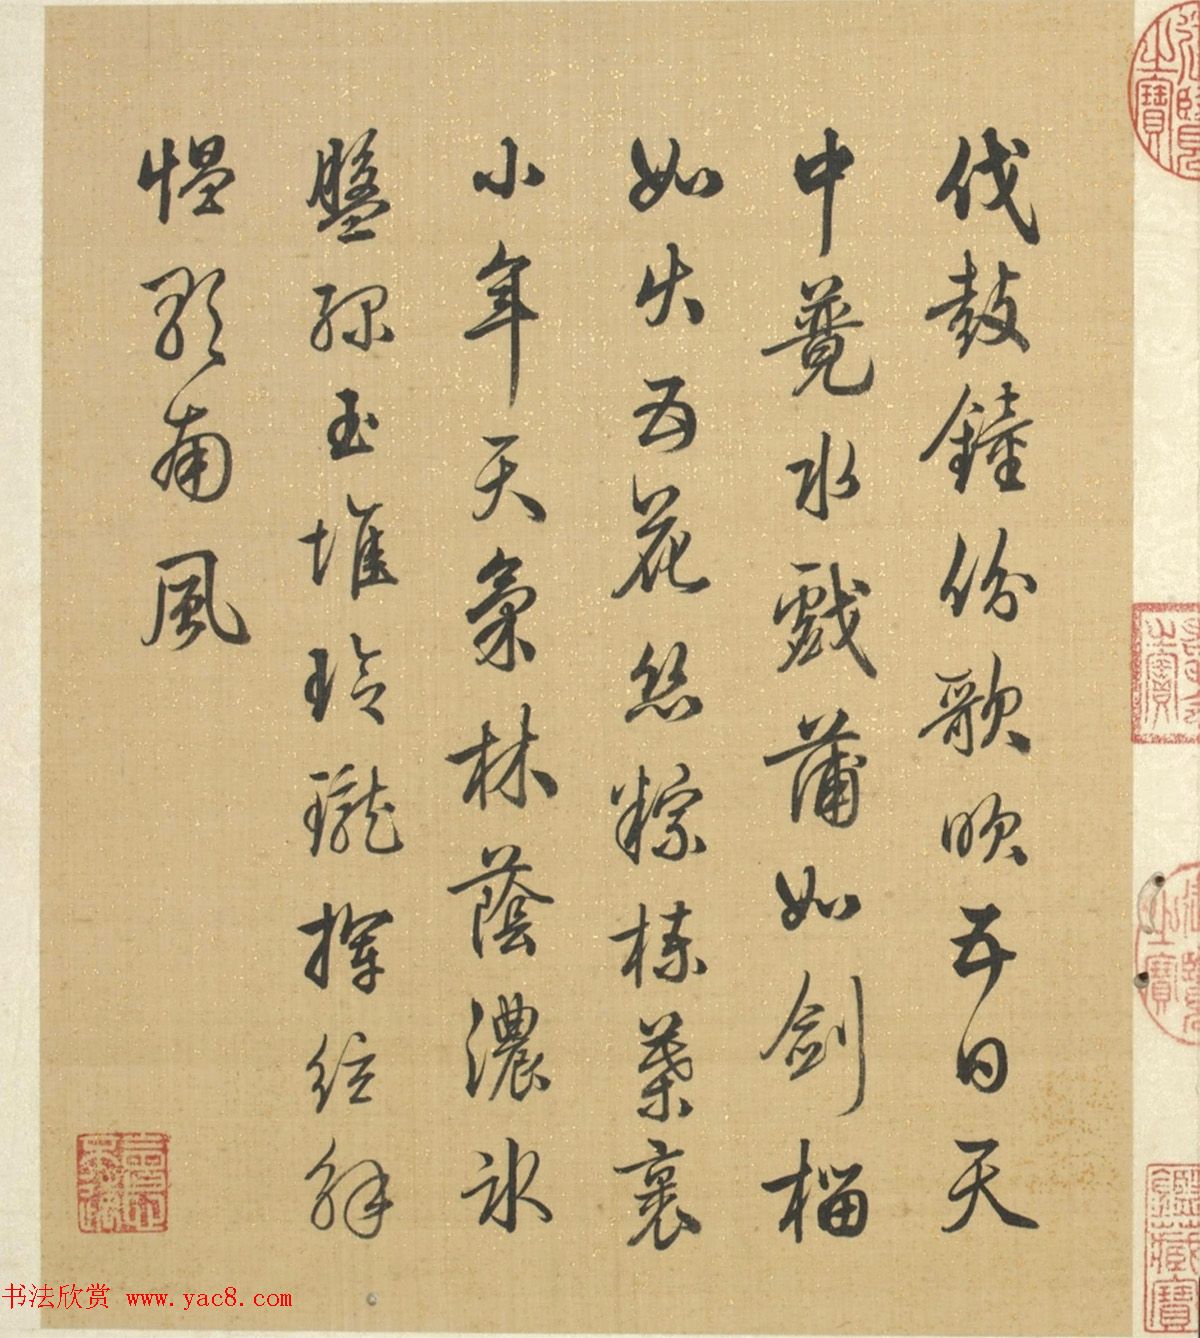 伐鼓鐘份歌吹五日天
中競水戲蒲如劍榴
如火五花絲粽楝葉裹
小年天氣林蔭濃冰
盤玉堆玲瓏揮絃解
慍歌南風
书法欣赏 www.yac8.com